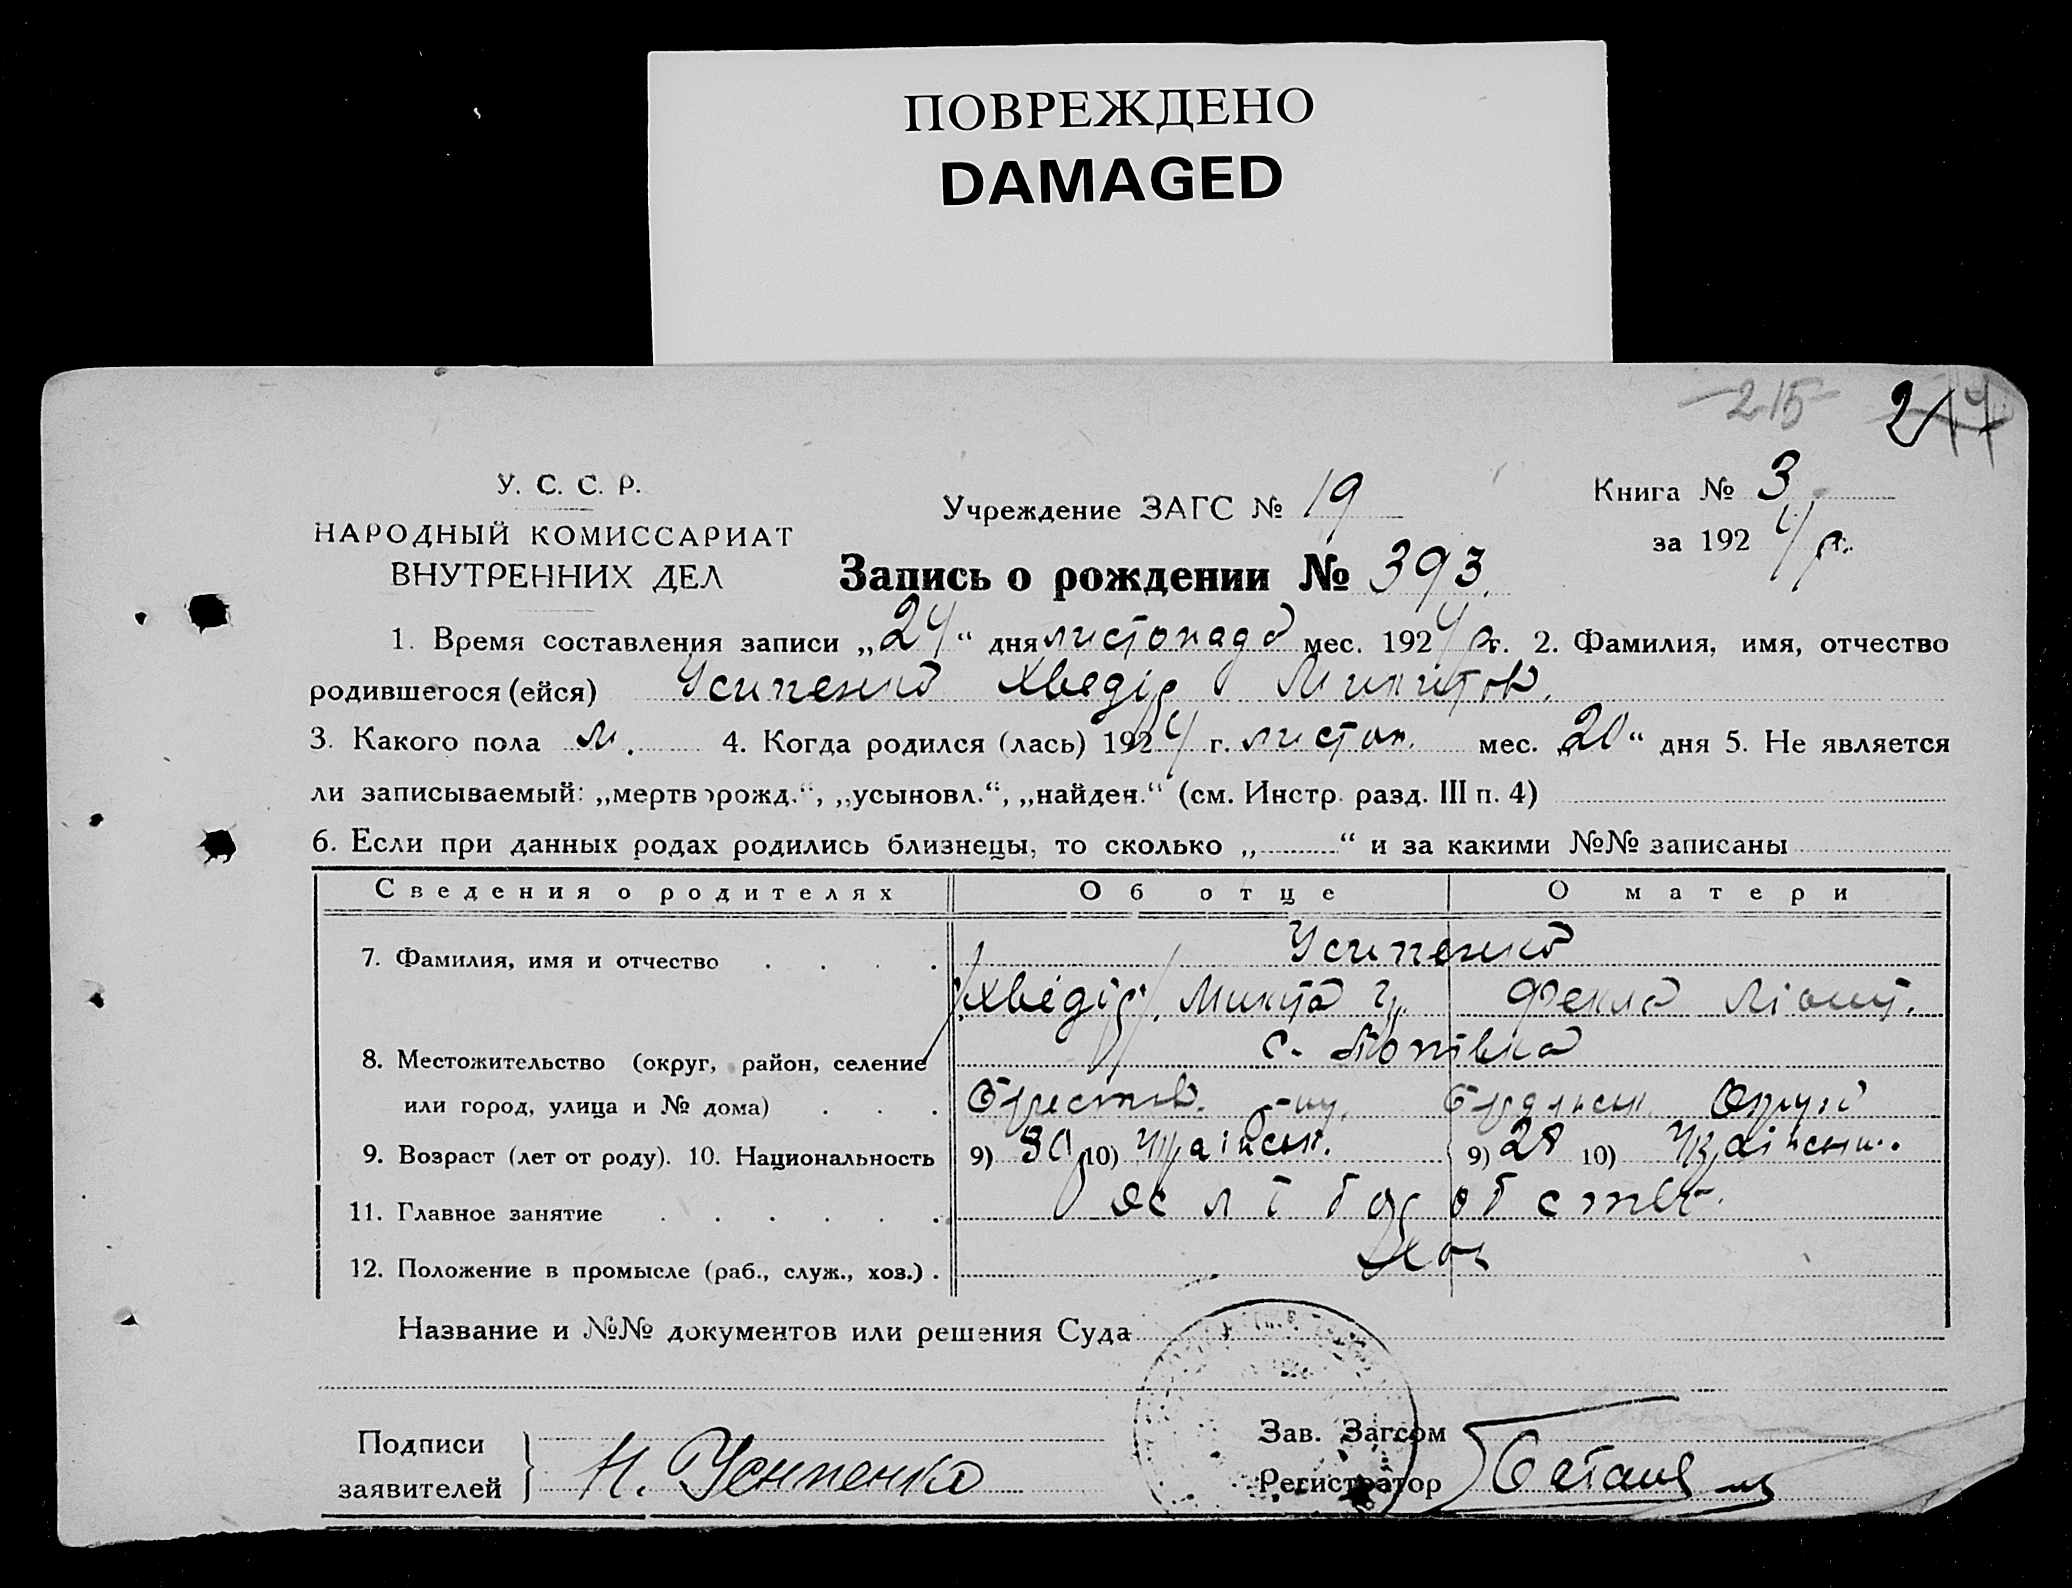 ПОВРЕЖДЕНО
DAMAGED
215
У. С. С. Р.
НАРОДНЫЙ КОМИССАРИАТ
ВНУТРЕННИХ ДЕЛ
Учреждение ЗАГС № 19
Книга № 3
за 1924 р.
Запись о рождении № 393.
1. Время составления записи „24“ дня листопада мес. 1924 р. 2. Фамилия, имя, отчество
родившегося (ейся) Усипенко Хведір Микитов.
3. Какого пола м. 4. Когда родился (лась) 1924 г. листоп. мес. „20“ дня 5. Не является
ли записываемый: „мертворожд.“, „усыновл.“, „найден.“ (см. Инстр. разд. III п. 4)
6. Если при данных родах родились близнецы, то сколько „ “ и за какими №№ записаны
Сведения о родителях Об отце О матери
7. Фамилия, имя и отчество Усипенко
/Хведір/ Микита Фекла
8. Местожительство (округ, район, селение с. Попівка
или город, улица и № дома) Округи
9. Возраст (лет от роду). 10. Национальность 9) 30 10) Українськ. 9) 28 10) Українськ.
11. Главное занятие
12. Положение в промысле (раб., служ., хоз.)
Название и №№ документов или решения Суда
Подписи
заявителей
Н. Усипенко
Зав. Загсом
Регистратор